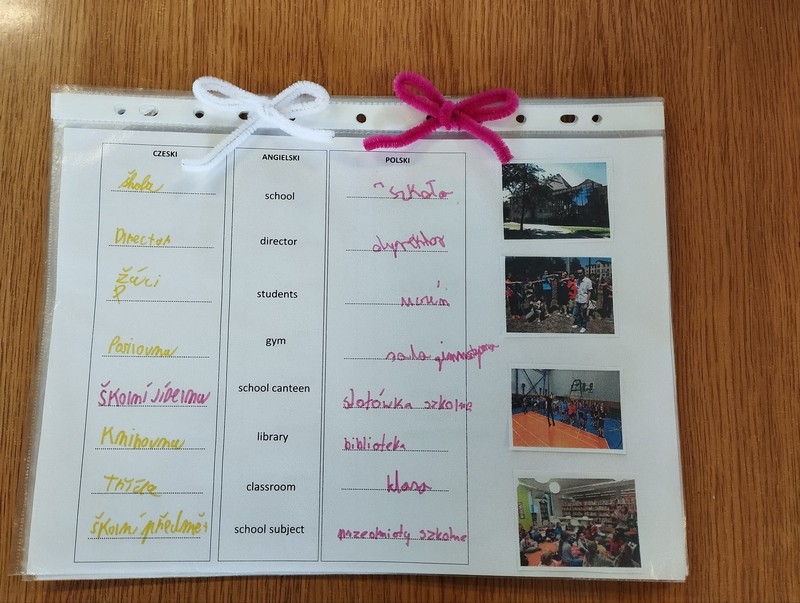 CZESKI ANGIELSKI POLSKI
škola school szkoła
Director director dyrektor
Žáci students
gym sala
Školní jídelna school canteen stołówka szkolna
Knihovna library biblioteka
Třída classroom klasa
školní předmět school subject przedmioty szkolne